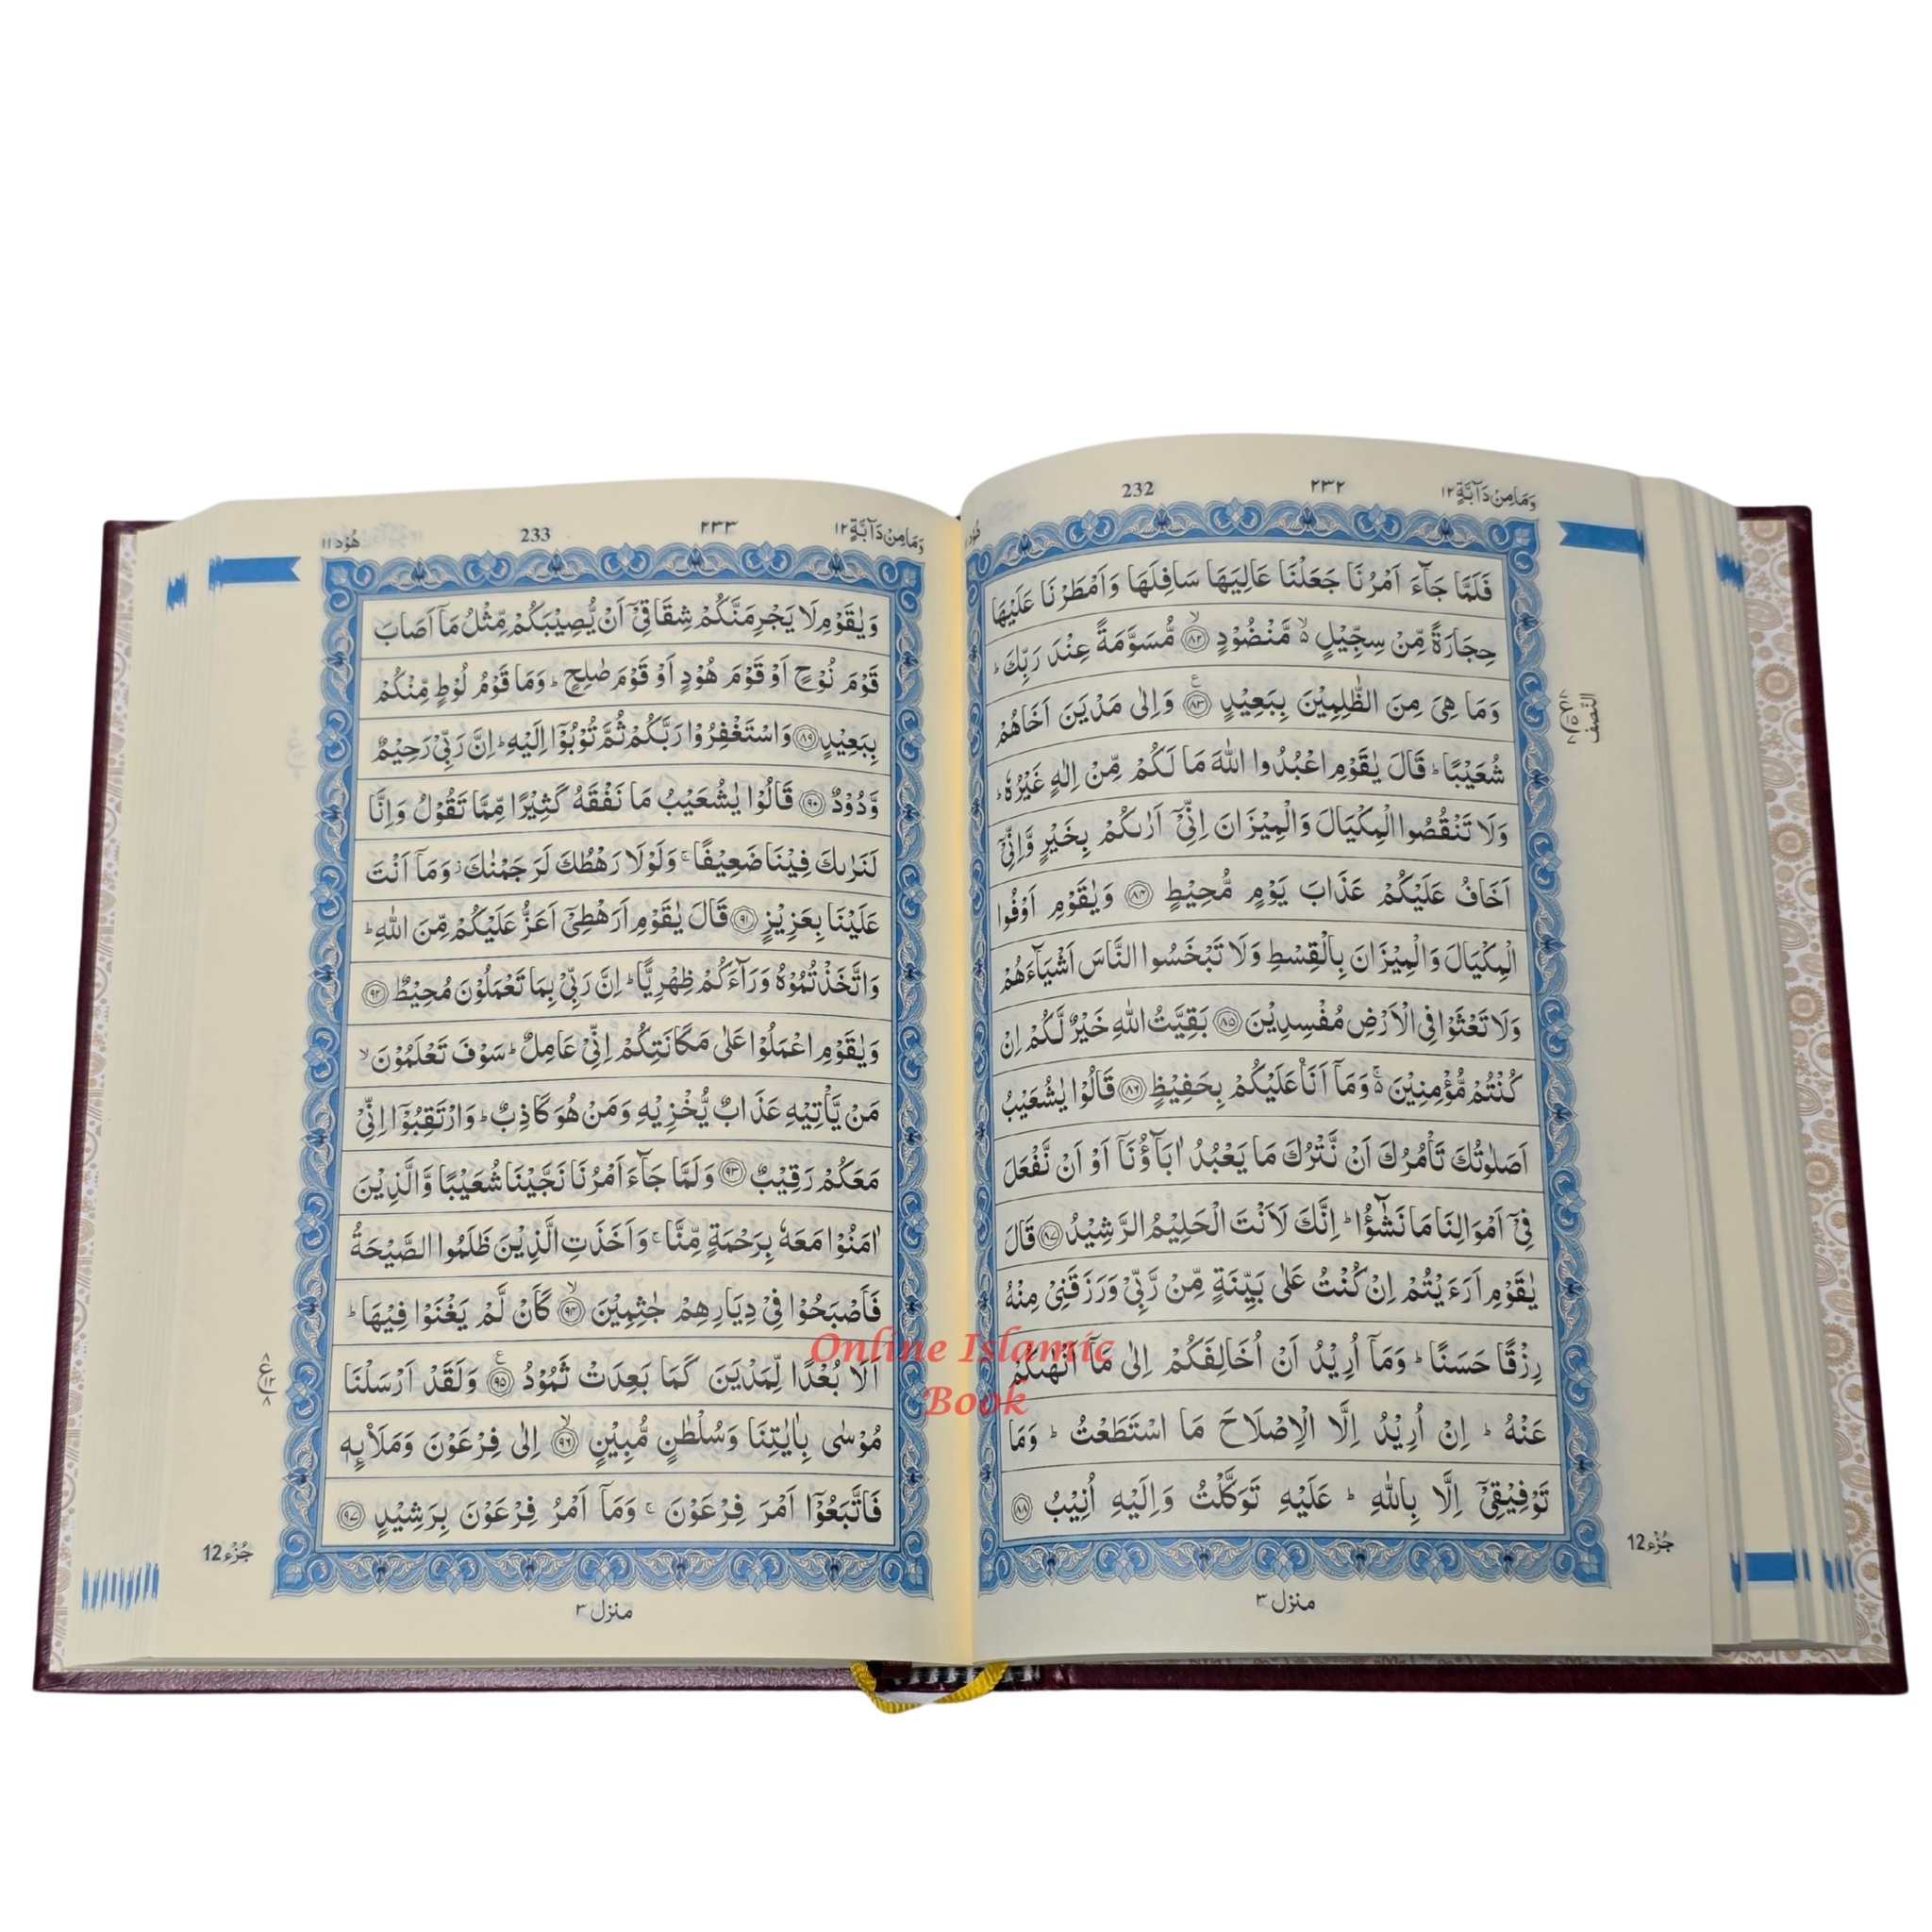 وَمَا مِنْ دَآبَّةٍ ١٢
٢٣٢
232
فَلَمَّا جَآءَ اَمْرُنَا جَعَلْنَا عَالِيَهَا سَافِلَهَا وَاَمْطَرْنَا عَلَيْهَا
حِجَارَةً مِّنْ سِجِّيْلٍ ۵ۙ مَّنْضُوْدٍ ۙ﴿٨٢﴾ مُّسَوَّمَةً عِنْدَ رَبِّكَ ؕ
وَمَا هِيَ مِنَ الظّٰلِمِيْنَ بِبَعِيْدٍ ﴿٨٣﴾ ع وَاِلٰى مَدْيَنَ اَخَاهُمْ
شُعَيْبًا ؕ قَالَ يٰقَوْمِ اعْبُدُوا اللّٰهَ مَا لَكُمْ مِّنْ اِلٰهٍ غَيْرُهٗ ؕ
وَلَا تَنْقُصُوا الْمِكْيَالَ وَالْمِيْزَانَ اِنِّيْٓ اَرٰىكُمْ بِخَيْرٍ وَّاِنِّيْٓ
اَخَافُ عَلَيْكُمْ عَذَابَ يَوْمٍ مُّحِيْطٍ ﴿٨٤﴾ وَيٰقَوْمِ اَوْفُوا
الْمِكْيَالَ وَالْمِيْزَانَ بِالْقِسْطِ وَلَا تَبْخَسُوا النَّاسَ اَشْيَآءَهُمْ
وَلَا تَعْثَوْا فِى الْاَرْضِ مُفْسِدِيْنَ ﴿٨٥﴾ بَقِيَّتُ اللّٰهِ خَيْرٌ لَّكُمْ اِنْ
كُنْتُمْ مُّؤْمِنِيْنَ ۵ۚ وَمَآ اَنَا عَلَيْكُمْ بِحَفِيْظٍ ﴿٨٦﴾ قَالُوْا يٰشُعَيْبُ
اَصَلٰوتُكَ تَاْمُرُكَ اَنْ نَّتْرُكَ مَا يَعْبُدُ اٰبَآؤُنَآ اَوْ اَنْ نَّفْعَلَ
فِيْٓ اَمْوَالِنَا مَا نَشٰٓؤُا ؕ اِنَّكَ لَاَنْتَ الْحَلِيْمُ الرَّشِيْدُ ﴿٨٧﴾ قَالَ
يٰقَوْمِ اَرَءَيْتُمْ اِنْ كُنْتُ عَلٰى بَيِّنَةٍ مِّنْ رَّبِّيْ وَرَزَقَنِيْ مِنْهُ
رِزْقًا حَسَنًا ؕ وَمَآ اُرِيْدُ اَنْ اُخَالِفَكُمْ اِلٰى مَآ اَنْهٰىكُمْ
عَنْهُ ؕ اِنْ اُرِيْدُ اِلَّا الْاِصْلَاحَ مَا اسْتَطَعْتُ ؕ وَمَا
تَوْفِيْقِيْٓ اِلَّا بِاللّٰهِ ؕ عَلَيْهِ تَوَكَّلْتُ وَاِلَيْهِ اُنِيْبُ ﴿٨٨﴾
النِّصْف
جُزْء 12
منزل ٣
وَمَا مِنْ دَآبَّةٍ ١٢
٢٣٣
233
هُوْد ١١
وَيٰقَوْمِ لَا يَجْرِمَنَّكُمْ شِقَاقِيْٓ اَنْ يُّصِيْبَكُمْ مِّثْلُ مَآ اَصَابَ
قَوْمَ نُوْحٍ اَوْ قَوْمَ هُوْدٍ اَوْ قَوْمَ صٰلِحٍ ؕ وَمَا قَوْمُ لُوْطٍ مِّنْكُمْ
بِبَعِيْدٍ ﴿٨٩﴾ وَاسْتَغْفِرُوْا رَبَّكُمْ ثُمَّ تُوْبُوْٓا اِلَيْهِ ؕ اِنَّ رَبِّيْ رَحِيْمٌ
وَّدُوْدٌ ﴿٩٠﴾ قَالُوْا يٰشُعَيْبُ مَا نَفْقَهُ كَثِيْرًا مِّمَّا تَقُوْلُ وَاِنَّا
لَنَرٰىكَ فِيْنَا ضَعِيْفًا ۚ وَلَوْلَا رَهْطُكَ لَرَجَمْنٰكَ ؗ وَمَآ اَنْتَ
عَلَيْنَا بِعَزِيْزٍ ﴿٩١﴾ قَالَ يٰقَوْمِ اَرَهْطِيْٓ اَعَزُّ عَلَيْكُمْ مِّنَ اللّٰهِ ؕ
وَاتَّخَذْتُمُوْهُ وَرَآءَكُمْ ظِهْرِيًّا ؕ اِنَّ رَبِّيْ بِمَا تَعْمَلُوْنَ مُحِيْطٌ ﴿٩٢﴾
وَيٰقَوْمِ اعْمَلُوْا عَلٰى مَكَانَتِكُمْ اِنِّيْ عَامِلٌ ؕ سَوْفَ تَعْلَمُوْنَ ۙ
مَنْ يَّاْتِيْهِ عَذَابٌ يُّخْزِيْهِ وَمَنْ هُوَ كَاذِبٌ ؕ وَارْتَقِبُوْٓا اِنِّيْ
مَعَكُمْ رَقِيْبٌ ﴿٩٣﴾ وَلَمَّا جَآءَ اَمْرُنَا نَجَّيْنَا شُعَيْبًا وَّالَّذِيْنَ
اٰمَنُوْا مَعَهٗ بِرَحْمَةٍ مِّنَّا ۚ وَاَخَذَتِ الَّذِيْنَ ظَلَمُوا الصَّيْحَةُ
فَاَصْبَحُوْا فِيْ دِيَارِهِمْ جٰثِمِيْنَ ۙ﴿٩٤﴾ كَاَنْ لَّمْ يَغْنَوْا فِيْهَا ؕ
اَلَا بُعْدًا لِّمَدْيَنَ كَمَا بَعِدَتْ ثَمُوْدُ ﴿٩٥﴾ ع وَلَقَدْ اَرْسَلْنَا
مُوْسٰى بِاٰيٰتِنَا وَسُلْطٰنٍ مُّبِيْنٍ ۙ﴿٩٦﴾ اِلٰى فِرْعَوْنَ وَمَلَا۟ئِهٖ
فَاتَّبَعُوْٓا اَمْرَ فِرْعَوْنَ ۚ وَمَآ اَمْرُ فِرْعَوْنَ بِرَشِيْدٍ ﴿٩٧﴾
جُزْء 12
منزل ٣
Online Islamic
Book